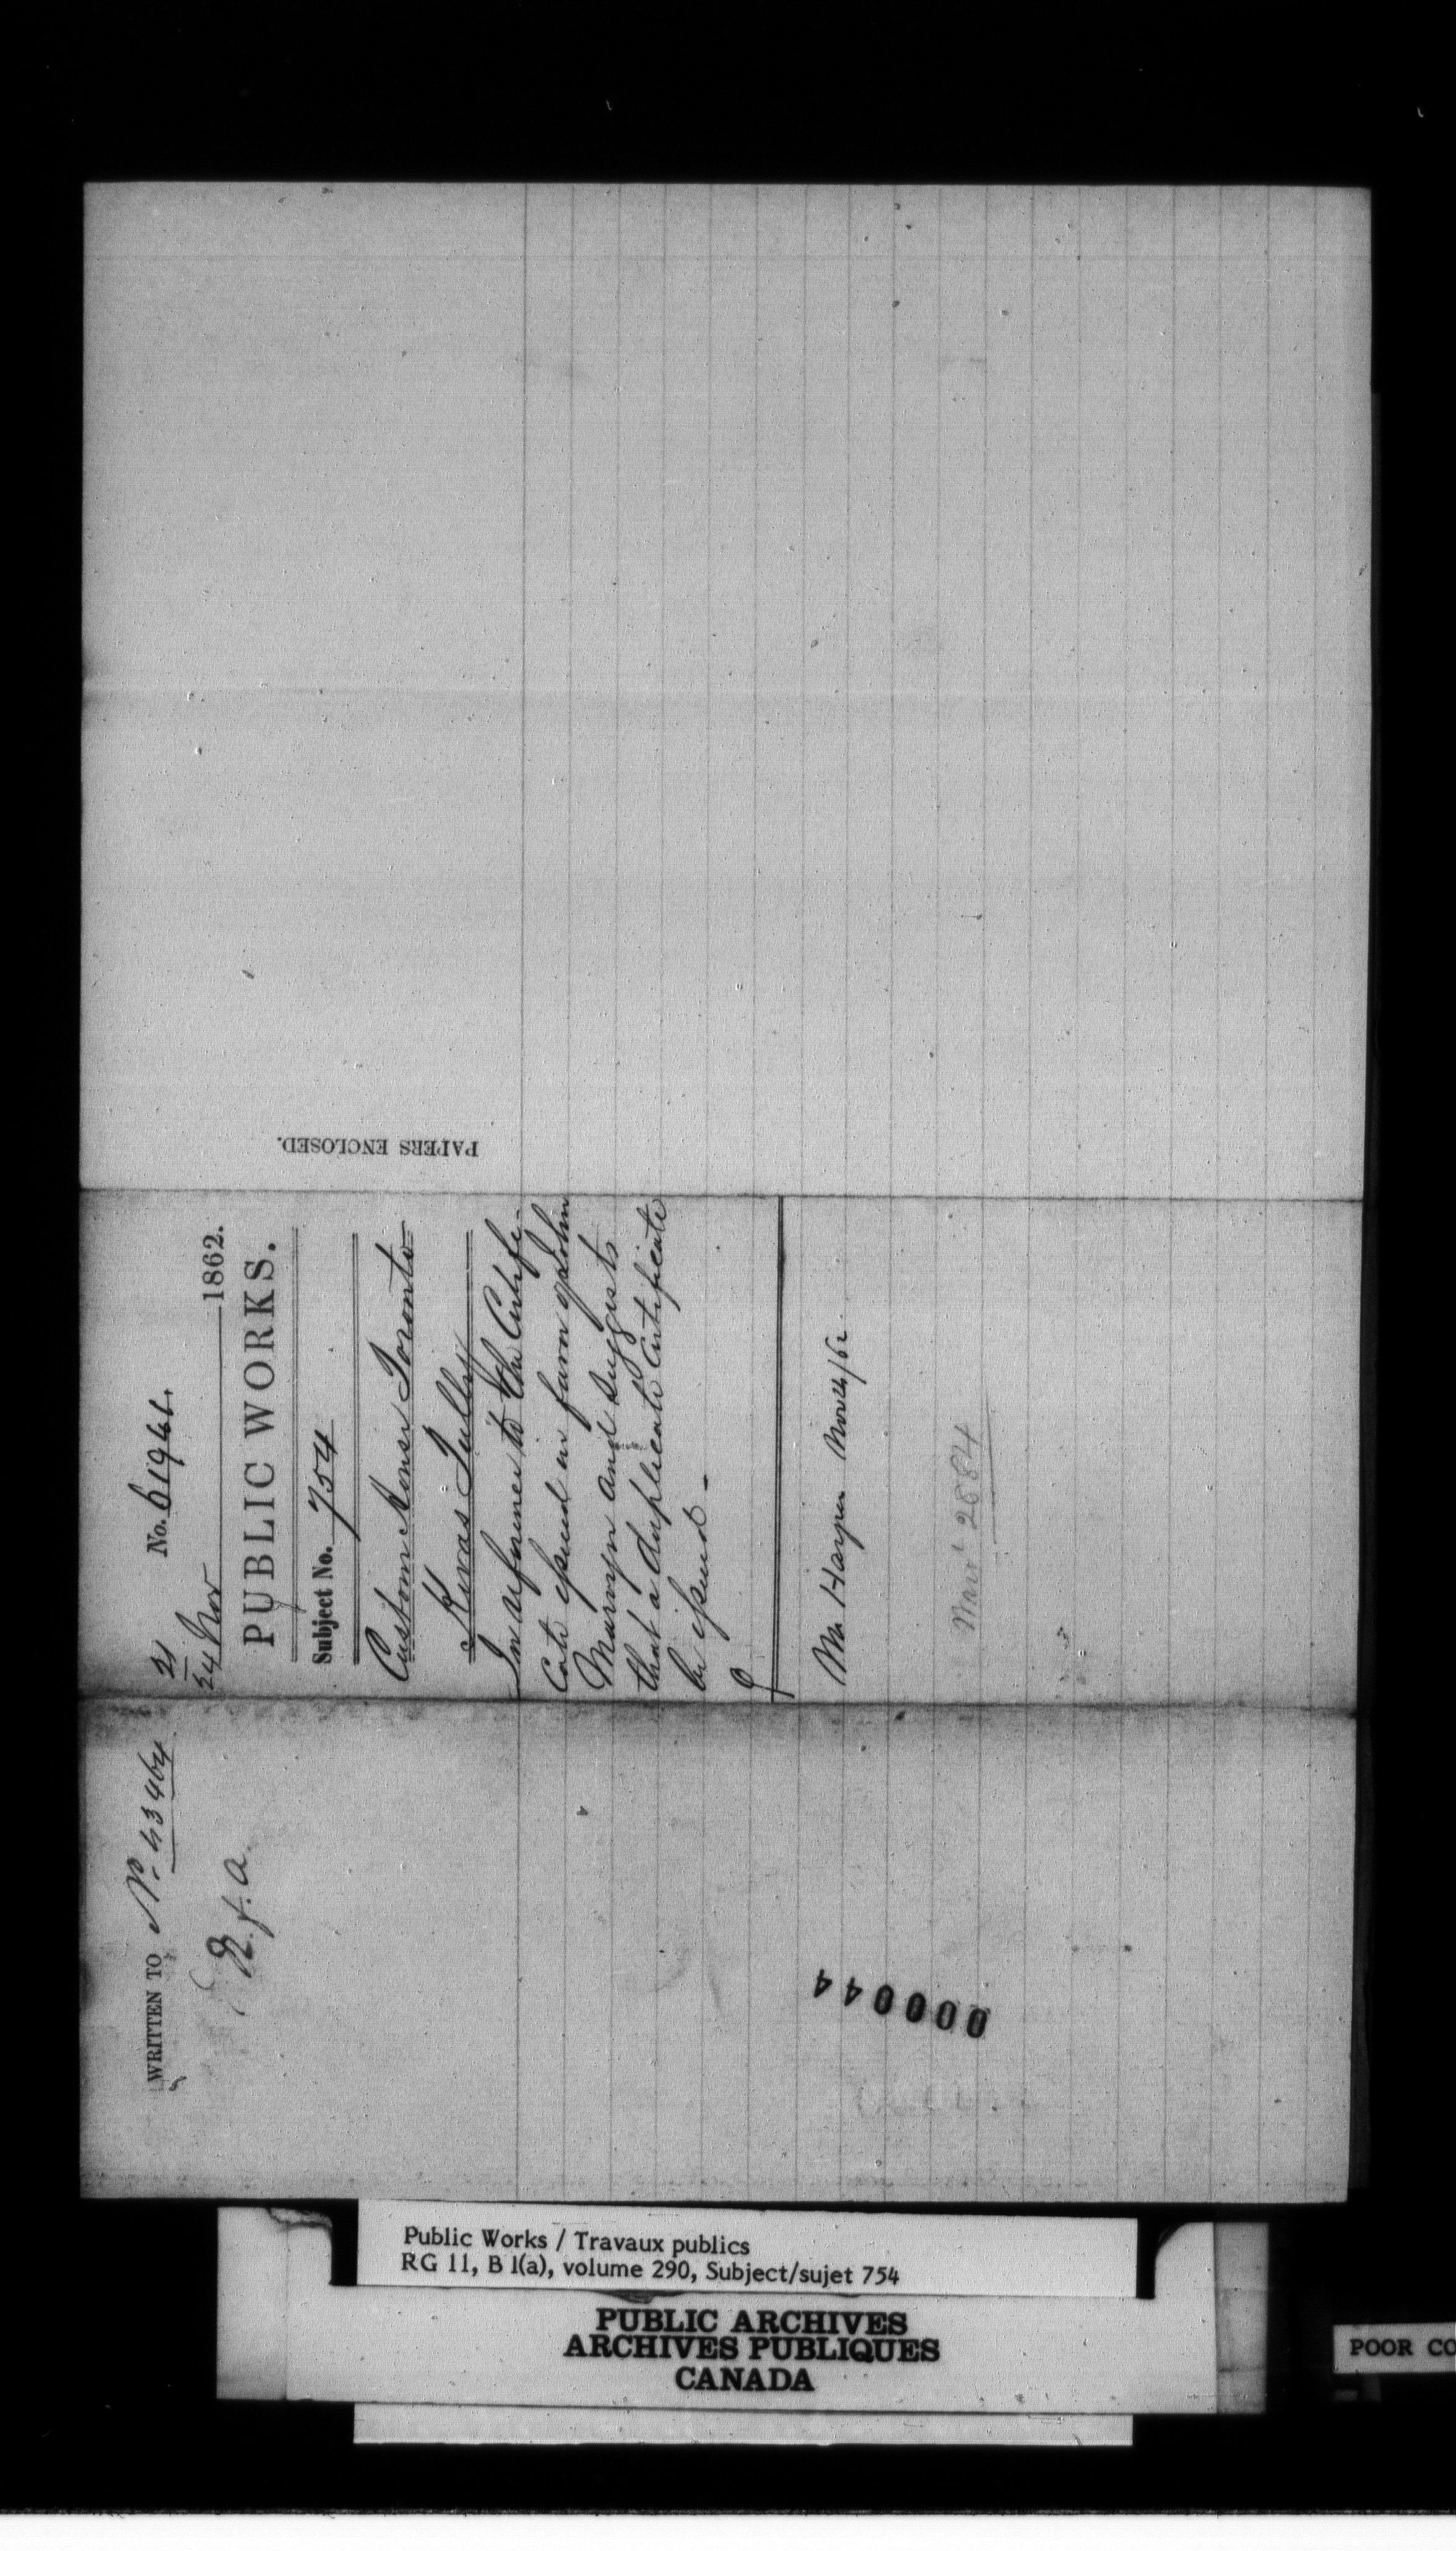 WRITTEN TO No. 43464
R.f.a.
21
24 Nov 1862.
No. 61946.
PUBLIC WORKS.
Subject No. 754
Custom House Toronto
Kivas Tully
In reference to the Certifi-
cate issued in favor of John
Marvyn and suggests
that a duplicate Certificate
be issued -
Mr Harper Nov 24/62
2884
PAPERS ENCLOSED.
000044
Public Works / Travaux publics
RG 11, B 1(a), volume 290, Subject/sujet 754
PUBLIC ARCHIVES
ARCHIVES PUBLIQUES
CANADA
POOR CO